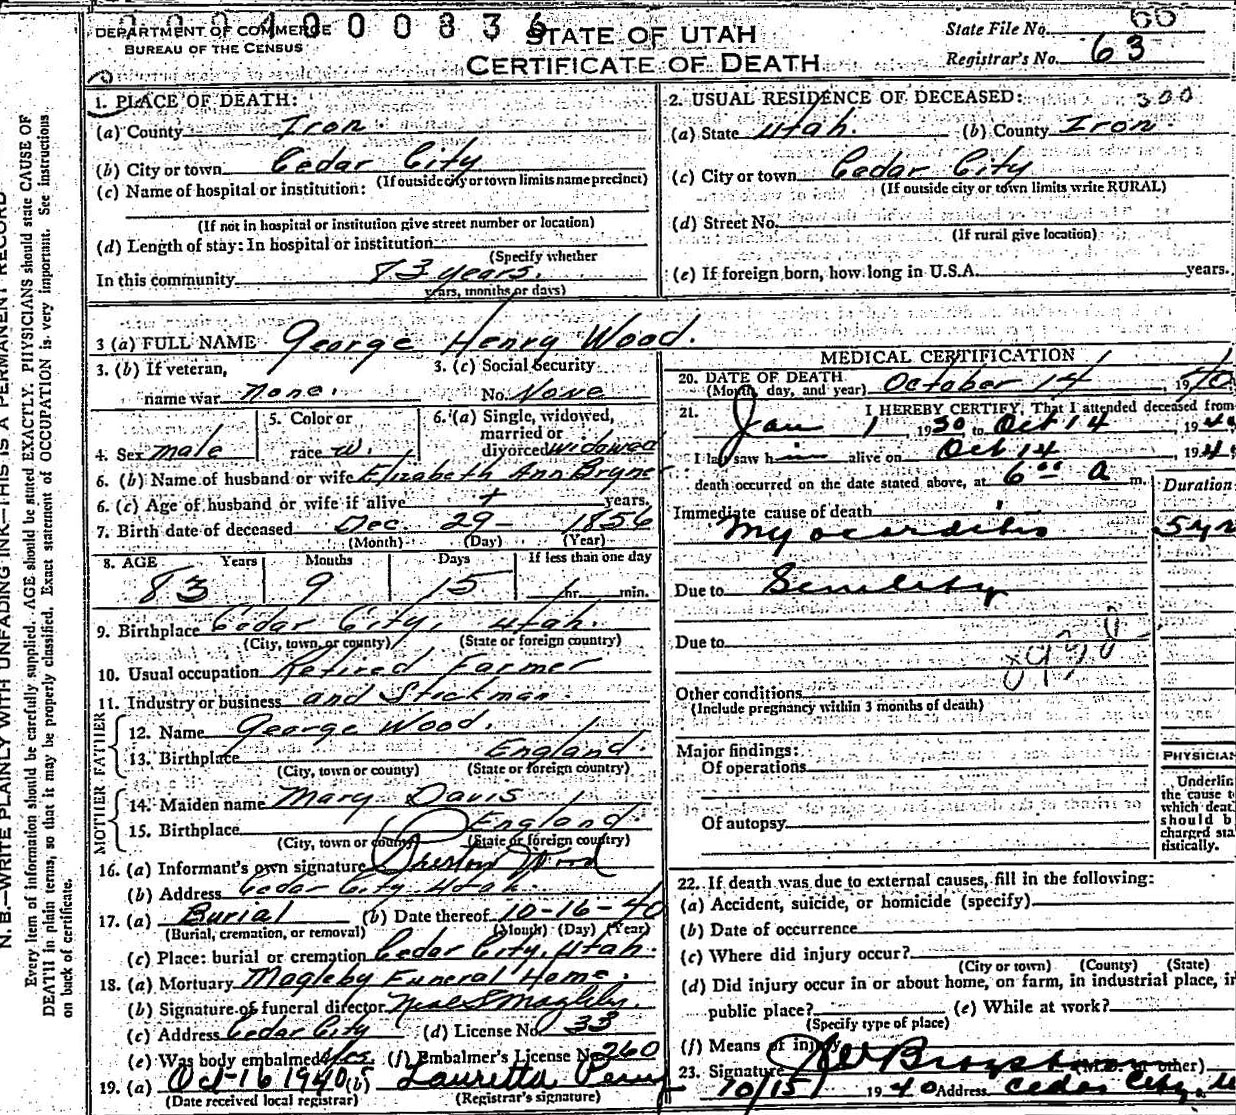 0004000836
DEPARTMENT OF COMMERCE
BUREAU OF THE CENSUS
STATE OF UTAH
CERTIFICATE OF DEATH
State File No. 60
Registrar's No. 63
N. B.—WRITE PLAINLY WITH UNFADING INK—THIS IS A PERMANENT RECORD
Every item of information should be carefully supplied. AGE should be stated EXACTLY. PHYSICIANS should state CAUSE OF
DEATH in plain terms, so that it may be properly classified. Exact statement of OCCUPATION is very important. See instructions
on back of certificate.
1. PLACE OF DEATH:
(a) County Iron.
(b) City or town Cedar City
(If outside city or town limits name precinct)
(c) Name of hospital or institution:
(If not in hospital or institution give street number or location)
(d) Length of stay: In hospital or institution
(Specify whether
In this community 83 years.
years, months or days)
2. USUAL RESIDENCE OF DECEASED: 300
(a) State Utah. (b) County Iron.
(c) City or town Cedar City
(If outside city or town limits write RURAL)
(d) Street No.
(If rural give location)
(e) If foreign born, how long in U.S.A. years.
3 (a) FULL NAME George Henry Wood.
3. (b) If veteran,
name war none.
3. (c) Social Security
No. None
4. Sex male
5. Color or
race W.
6. (a) Single, widowed,
married or
divorced widowed
6. (b) Name of husband or wife Elizabeth Ann Bryner
6. (c) Age of husband or wife if alive years.
7. Birth date of deceased Dec. 29- 1856
(Month) (Day) (Year)
8. AGE Years Months Days If less than one day
83 9 15 hr. min.
9. Birthplace Cedar City, Utah.
(City, town, or county) (State or foreign country)
10. Usual occupation Retired Farmer
11. Industry or business and Stockman.
FATHER
12. Name George Wood.
13. Birthplace England.
(City, town or county) (State or foreign country)
MOTHER
14. Maiden name Mary Davis
15. Birthplace England.
(City, town or county) (State or foreign country)
16. (a) Informant's own signature Wood
(b) Address Cedar City Utah.
17. (a) Burial (b) Date thereof 10-16-40
(Burial, cremation, or removal) (Month) (Day) (Year)
(c) Place: burial or cremation Cedar City, Utah.
18. (a) Mortuary Magleby Funeral Home.
(b) Signature of funeral director Neal S Magleby.
(c) Address Cedar City (d) License No. 33
(e) Was body embalmed Yes. (f) Embalmer's License No. 260
19. (a) Oct-16 1940 (b) Lauretta Perry
(Date received local registrar) (Registrar's signature)
MEDICAL CERTIFICATION
20. DATE OF DEATH
(Month, day, and year) October 14, 1940
21. I HEREBY CERTIFY, That I attended deceased from
Jan 1, 1930 to Oct 14 1940
I last saw him alive on Oct 14 194
death occurred on the date stated above, at 6 00 A m.
Duration
Immediate cause of death
Myocarditis 5 yrs
Due to Senility
Due to
Other conditions
(Include pregnancy within 3 months of death)
Major findings:
Of operations
Of autopsy
PHYSICIAN
Underlin
the cause t
which deat
should b
charged sta
tistically.
22. If death was due to external causes, fill in the following:
(a) Accident, suicide, or homicide (specify)
(b) Date of occurrence
(c) Where did injury occur?
(City or town) (County) (State)
(d) Did injury occur in or about home, on farm, in industrial place, in
public place? (e) While at work?
(Specify type of place)
(f) Means of injury
23. Signature (M.D. or other)
10/15 1940 Address Cedar City, U